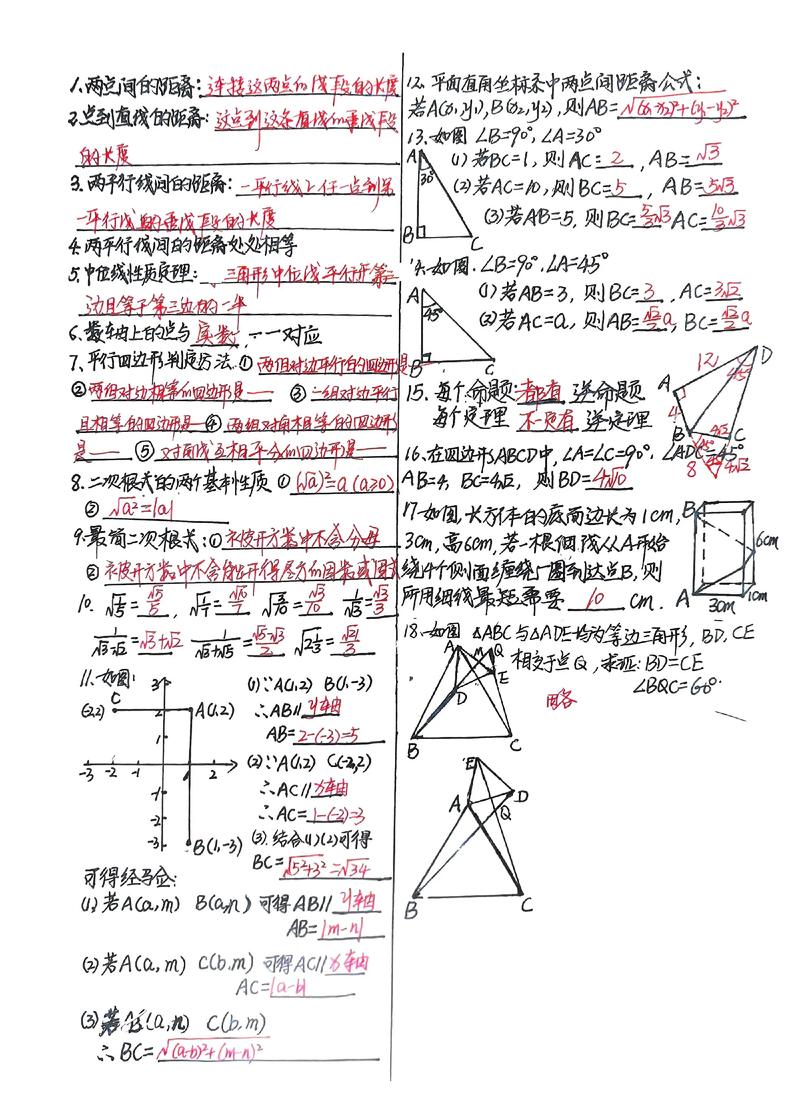 1.两点间的距离:连接这两点的线段的长度
2.点到直线的距离:这点到这条直线的垂线段
的长度
3.两平行线间的距离:一平行线上任一点到另
一平行线的垂线段的长度
4.两平行线间的距离处处相等
5.中位线性质定理:三角形中位线平行于第三
边且等于第三边的一半
6.数轴上的点与实数,一一对应
7.平行四边形判定方法.①两组对边平行的四边形是—
②两组对边相等的四边形是— ③一组对边平行
且相等的四边形是—④两组对角相等的四边形
是— ⑤对角线互相平分的四边形是—
8.二次根式的两个基本性质 ①(√a)²=a(a≥0)
②√a²=|a|
9.最简二次根式:①被开方数中不含分母
②被开方数中不含能开得尽方的因数或因式
10. √1/5=√5/5, √1/7=√7/7 √3/10=√30/10 1/√3=√3/3
1/(√3-√2)=√3+√2 1/(√3+√5)=(√5-√3)/2 √2 1/3=√21/3
11.如图:
C
(-2,2)
A(1,2)
B(1,-3)
3
2
1
-1
-2
-3
-3 -2 -1 2
(1)∵A(1,2) B(1,-3)
∴AB∥y轴
AB=2-(-3)=5
(2)∵A(1,2) C(-2,2)
∴AC∥x轴
∴AC=1-(-2)=3
(3).结合(1)(2)可得
BC=√5²+3²=√34
可得经验:
(1)若A(a,m) B(a,n)可得AB∥y轴
AB=|m-n|
(2)若A(a,m) C(b,m) 可得AC∥x轴
AC=|a-b|
(3)若B(a,n) C(b,m)
∴BC=√(a-b)²+(m-n)²
12.平面直角坐标系中两点间距离公式:
若A(x₁,y₁),B(x₂,y₂),则AB=√(x₁-x₂)²+(y₁-y₂)²
13.如图 ∠B=90°,∠A=30°
(1)若BC=1,则AC=2,AB=√3
(2)若AC=10,则BC=5,AB=5√3
(3)若AB=5,则BC=5/3√3 AC=10/3√3
A
30°
B
C
14.如图.∠B=90°.∠A=45°
(1)若AB=3,则BC=3,AC=3√2
(2)若AC=a,则AB=√2/2a,BC=√2/2a
A
45°
B
C
15.每个命题:都有逆命题
每个定理 不一定有 逆定理
16.在四边形ABCD中,∠A=∠C=90°.∠ADC=45°
AB=4,BC=4√2,则BD=4√10
A
B
C
D
12
45°
4
4√2
45°
8
4√2
17.如图,长方体的底面边长为1cm,
3cm,高6cm,若一根细线从A开始
绕4个侧面缠绕一圈到达点B,则
所用细线最短需要 10 cm.
B
A
6cm
3cm
1cm
18.如图 △ABC与△ADE均为等边三角形,BD,CE
相交于点Q,求证:BD=CE
∠BQC=60°.
略
A
M
Q
E
D
B
C
E
A
D
Q
B
C